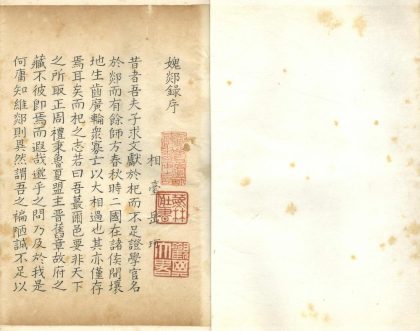 愧郯錄序
相臺岳珂
昔者吾夫子求文獻於杞而不足證學官名
於郯而有餘師方春秋時二國在諸侯間壤
地生齒廣輪衆寡亡以大相過也其亦僅存
焉耳矣而杞之志若曰吾蕞爾邑要非天下
之所取正周禮秉魯夏盟主晉舊章故府之
藏不彼即焉而遐哉邈乎之問乃及於我是
何庸知維郯則異然謂吾之褊陋誠不足以